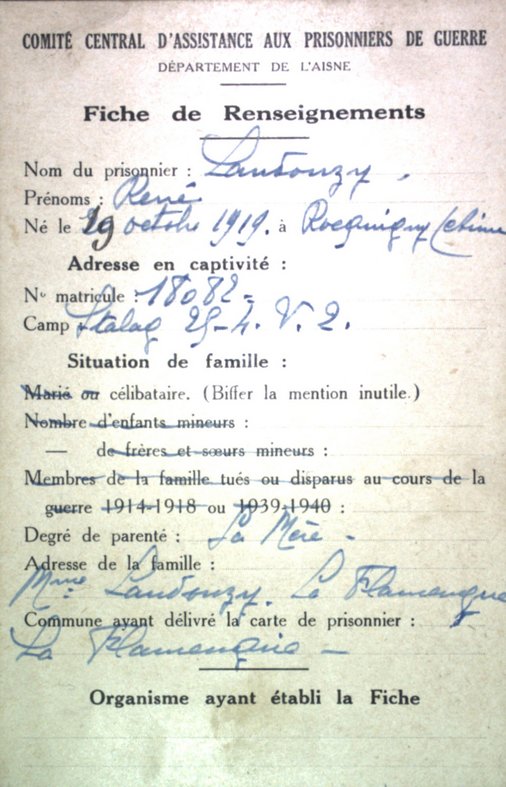 COMITÉ CENTRAL D'ASSISTANCE AUX PRISONNIERS DE GUERRE
DÉPARTEMENT DE L'AISNE
Fiche de Renseignements
Nom du prisonnier : Landouzy.
Prénoms : René
Né le 29 octobre 1919. à Rocquigny (
Adresse en captivité :
N° matricule : 18082 -
Camp Stalag V.
Situation de famille :
Marié ou célibataire. (Biffer la mention inutile.)
Nombre d'enfants mineurs :
— de frères et sœurs mineurs :
Membres de la famille tués ou disparus au cours de la
guerre 1914-1918 ou 1939-1940 :
Degré de parenté : La Mère -
Adresse de la famille :
Mme Landouzy. La Flamengrie
Commune ayant délivré la carte de prisonnier :
La Flamengrie -
Organisme ayant établi la Fiche